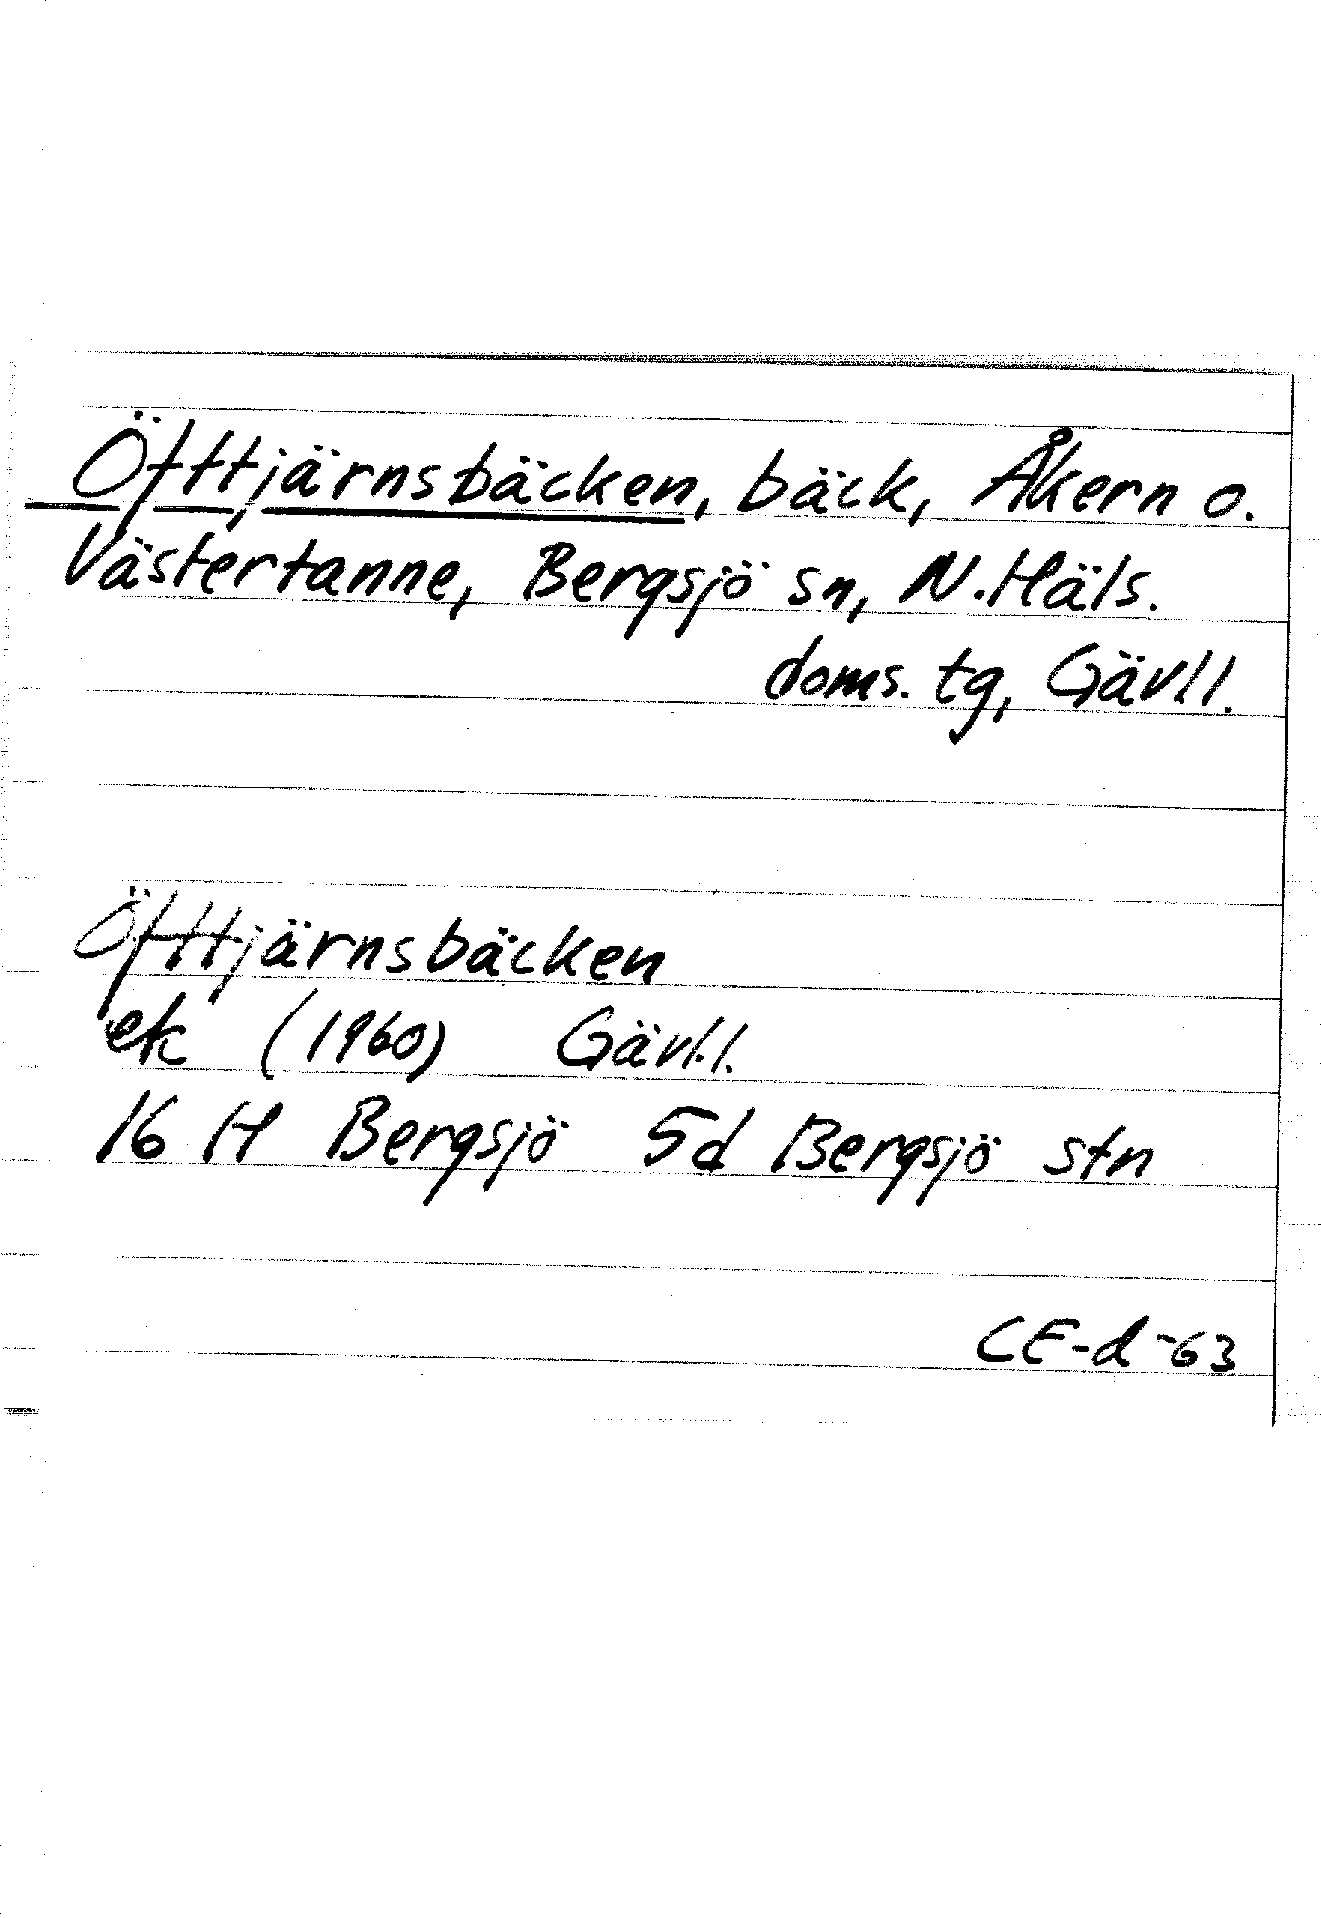 Öfttjärnsbäcken, bäck, Åkern o.
Västertanne, Bergsjö sn, N. Häls.
doms. tg, Gävl.l.
Öfttjärnsbäcken
ek (1960) Gävl.l.
16 H Bergsjö 5d Bergsjö stn
CE-d -63